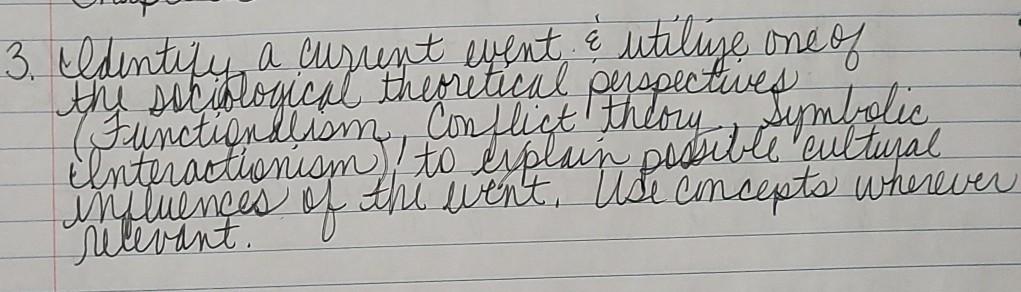 3. Identify a current event & utilize one of
the sociological theoretical perspectives
(Functionalism, Conflict theory, Symbolic
Interactionism) to explain possible cultural
influences of the event. Use concepts wherever
relevant.